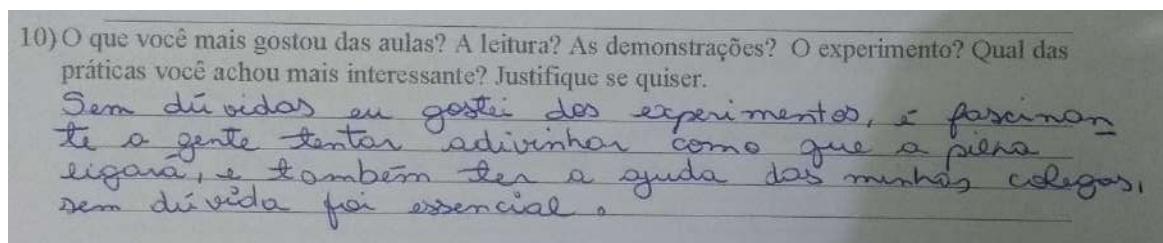 10) O que você mais gostou das aulas? A leitura? As demonstrações? O experimento? Qual das
práticas você achou mais interessante? Justifique se quiser.
Sem dúvidas eu gostei dos experimentos, é fascinan
te a gente tentar adivinhar como que a pilha
ligará, e também ter a ajuda das minhas colegas,
sem dúvida foi essencial.